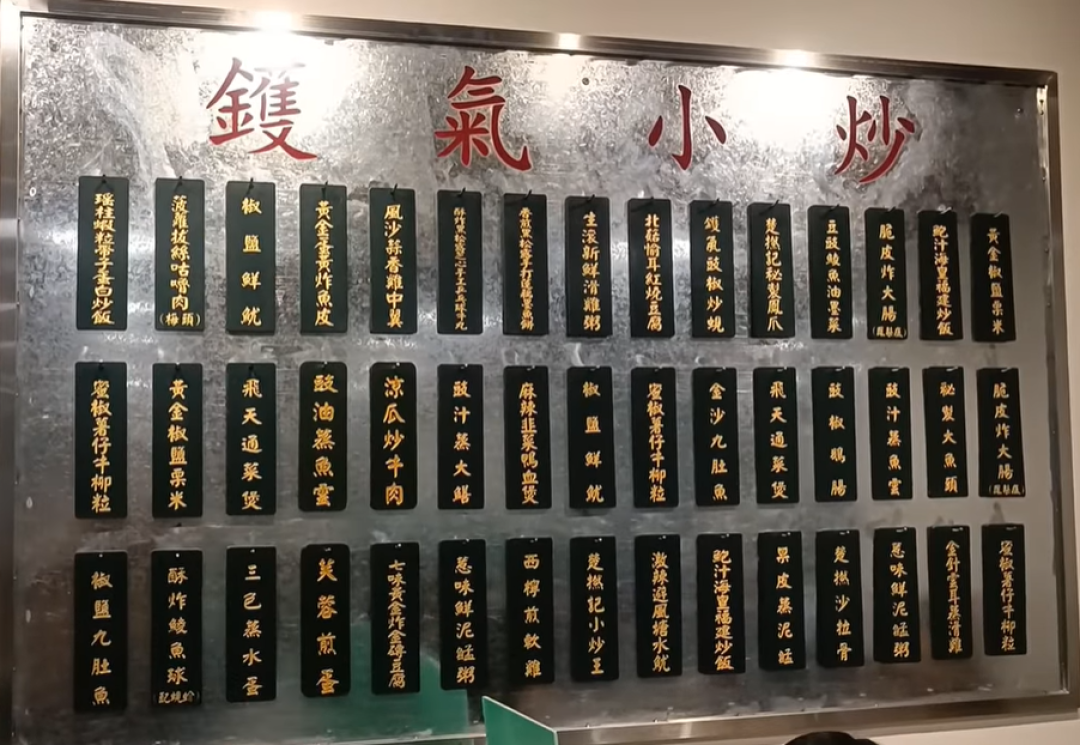 鑊氣小炒
瑤柱蝦粒帶子蛋白炒飯
菠蘿拔絲咕嚕肉
(梅頭)
椒鹽鮮魷
黃金蛋黃炸魚皮
風沙蒜香雞中翼
香煎黑松露手打蓮藕魚餅
生滾新鮮滑雞粥
北菇榆耳紅燒豆腐
鑊氣豉椒炒蜆
楚撚記秘製鳳爪
豆豉鯪魚油墨菜
脆皮炸大腸
鮑汁海皇福建炒飯
黃金椒鹽粟米
蜜椒薯仔牛柳粒
黃金椒鹽粟米
飛天通菜煲
豉油蒸魚雲
涼瓜炒牛肉
豉汁蒸大鱔
麻辣韭菜鴨血煲
椒鹽鮮魷
蜜椒薯仔牛柳粒
金沙九肚魚
飛天通菜煲
豉椒鵝腸
豉汁蒸魚雲
秘製大魚頭
脆皮炸大腸
椒鹽九肚魚
酥炸鯪魚球
(配蜆蚧)
三色蒸水蛋
芙蓉煎蛋
七味黃金炸金磚豆腐
葱味鮮泥鯭粥
西檸煎軟雞
楚撚記小炒王
激辣避風塘水魷
鮑汁海皇福建炒飯
果皮蒸泥鯭
楚撚沙拉骨
葱味鮮泥鯭粥
金針雲耳蒸滑雞
蜜椒薯仔牛柳粒